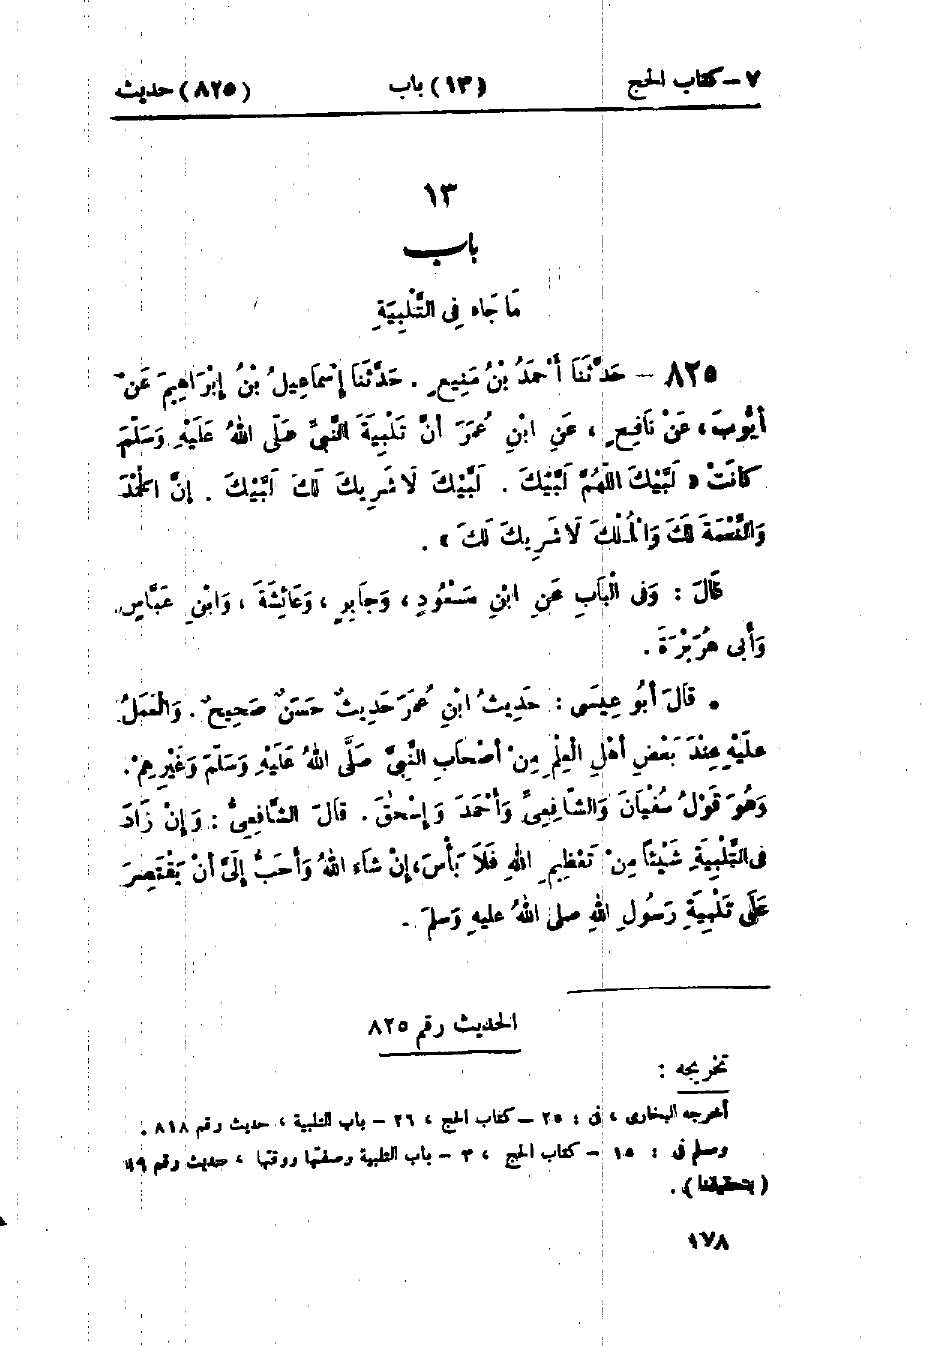 ٧ – كتاب الحج (١٣) باب (٨٢٥) حديث
١٣
باب
مَا جَاء فِى التَّلْبِيَةِ
٨٢٥ – حَدَّثَنَا أَحْمَدُ بْنُ مَنِيعٍ . حَدَّثَنَا إِسْمَاعِيلُ بْنُ إِبْرَاهِيمَ عَنْ
أَيُّوبَ، عَنْ نَافِعٍ ، عَنِ ابْنِ عُمَرَ أَنَّ تَلْبِيَةَ النَّبِىِّ صَلَّى اللهُ عَلَيْهِ وَسَلَّمَ
كَانَتْ « لَبَّيْكَ اللّهُمَّ لَبَّيْكَ . لَبَّيْكَ لَا شَرِيكَ لَكَ لَبَّيْكَ . إِنَّ الْحَمْدَ
وَالنِّعْمَةَ لَكَ وَالْمُلْكَ لَا شَرِيكَ لَكَ » .
قَالَ : وَفى الْبَابِ عَنِ ابْنِ مَسْعُودٍ ، وَجَابِرٍ ، وَعَائِشَةَ ، وَابْنِ عَبَّاسٍ،
وَأَبى هُرَيْرَةَ .
• قَالَ أَبُو عِيسَى : حَدِيثُ ابْنِ عُمَرَ حَدِيثٌ حَسَنٌ صَحِيحٌ . وَالْعَمَلُ
عَلَيْهِ عِنْدَ بَعْضِ أَهْلِ الْعِلْمِ مِنْ أَصْحَابِ النَّبِىِّ صَلَّى اللهُ عَلَيْهِ وَسَلَّمَ وَغَيْرِهِمْ .
وَهُوَ قَوْلُ سُفْيَانَ وَالشَّافِعِىِّ وَأَحْمَدَ وَإِسْحٰقَ . قَالَ الشَّافِعِىُّ : وَإِنْ زَادَ
فى التَّلْبِيَةِ شَيْئًا مِنْ تَعْظِيمِ اللهِ فَلَا بَأْسَ، إِنْ شَاءَ اللهُ وَأَحَبُّ إِلَىَّ أَنْ يَقْتَصِرَ
عَلَى تَلْبِيَةِ رَسُولِ اللهِ صلى اللهُ عليهِ وَسلمَ .
الحديث رقم ٨٢٥
تخريجه :
أخرجه البخارى ، فى : ٢٥ – كتاب الحج ، ٢٦ – باب التلبية ، حديث رقم ٨١٨ .
ومسلم فى : ١٥ – كتاب الحج ، ٣ – باب التلبية وصفتها ووقتها ، حديث رقم ١٩
( بتحقيقنا ) .
١٧٨